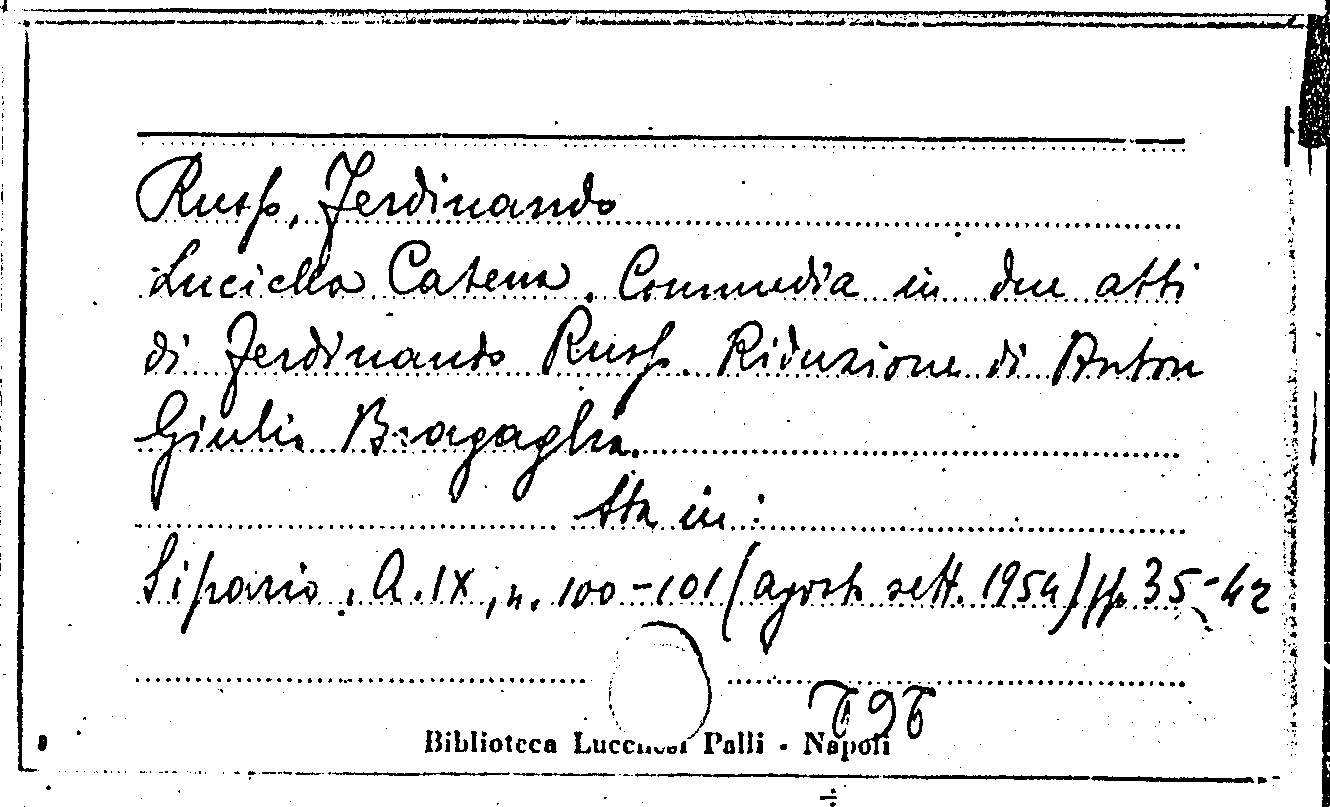 Russo, Ferdinando
Luciella Catena. Commedia in due atti
di Ferdinando Russo. Riduzione di Anton
Giulio Bragaglia.
Sta in:
Sipario, A. IX, n. 100-101 (agosto sett. 1954) pp. 35-42
Biblioteca Lucchesi Palli - Napoli